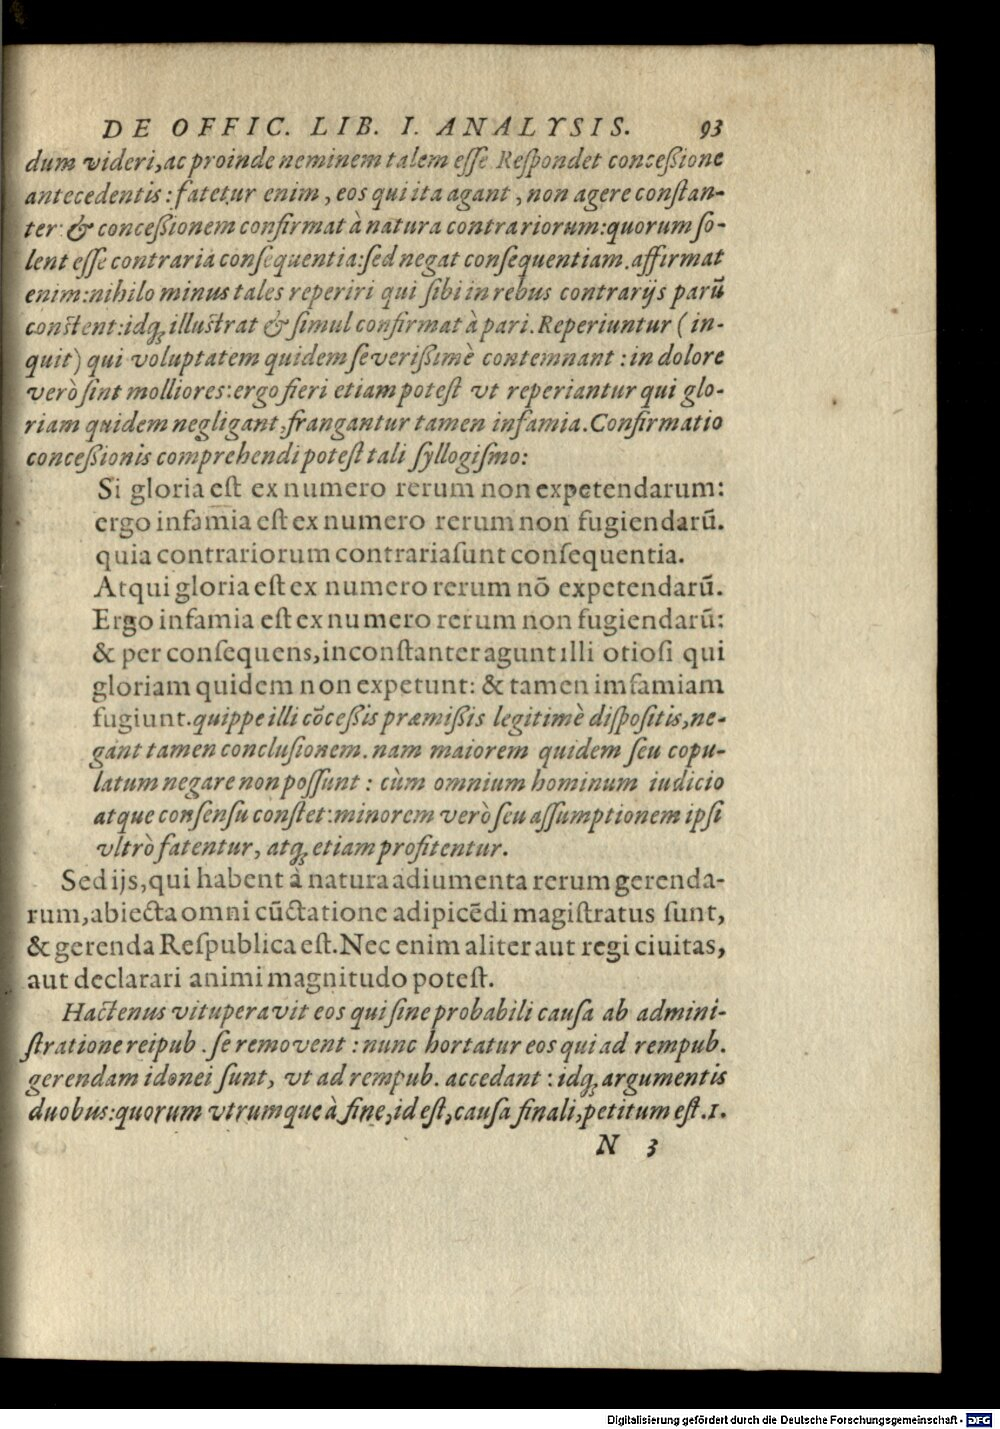 DE OFFIC. LIB. I. ANALYSIS. 93
dum videri, ac proinde neminem talem eſſe. Reſpondet conceßione
antecedentis: fatetur enim, eos qui ita agant, non agere conſtan-
ter: & conceßionem confirmat à natura contrariorum: quorum ſo-
lent eſſe contraria conſequentia: ſed negat conſequentiam. affirmat
enim: nihilo minus tales reperiri qui ſibi in rebus contrarijs parū
conſtent: idq; illuſtrat & ſimul confirmat à pari. Reperiuntur (in-
quit) qui voluptatem quidem ſeverißimè contemnant: in dolore
verò ſint molliores: ergo fieri etiam poteſt vt reperiantur qui glo-
riam quidem negligant, frangantur tamen infamia. Confirmatio
conceßionis comprehendi poteſt tali ſyllogiſmo:
Si gloria eſt ex numero rerum non expetendarum:
ergo infamia eſt ex numero rerum non fugiendarū.
quia contrariorum contraria ſunt conſequentia.
Atqui gloria eſt ex numero rerum nō expetendarū.
Ergo infamia eſt ex numero rerum non fugiendarū:
& per conſequens, inconſtanter agunt illi otioſi qui
gloriam quidem non expetunt: & tamen imfamiam
fugiunt. quippe illi cōceßis præmißis legitimè diſpoſitis, ne-
gant tamen concluſionem. nam maiorem quidem ſeu copu-
latum negare non poſſunt: cùm omnium hominum iudicio
atque conſenſu conſtet: minorem verò ſeu aſſumptionem ipſi
vltrò fatentur, atq; etiam profitentur.
Sed ijs, qui habent à natura adiumenta rerum gerenda-
rum, abiecta omni cūctatione adipicēdi magiſtratus ſunt,
& gerenda Reſpublica eſt. Nec enim aliter aut regi ciuitas,
aut declarari animi magnitudo poteſt.
Hactenus vituperavit eos qui ſine probabili cauſa ab admini-
ſtratione reipub. ſe removent: nunc hortatur eos qui ad rempub.
gerendam idonei ſunt, vt ad rempub. accedant: idq; argumentis
duobus: quorum vtrumque à fine, id eſt, cauſa finali, petitum eſt. 1.
N 3
Digitalisierung gefördert durch die Deutsche Forschungsgemeinschaft - DFG